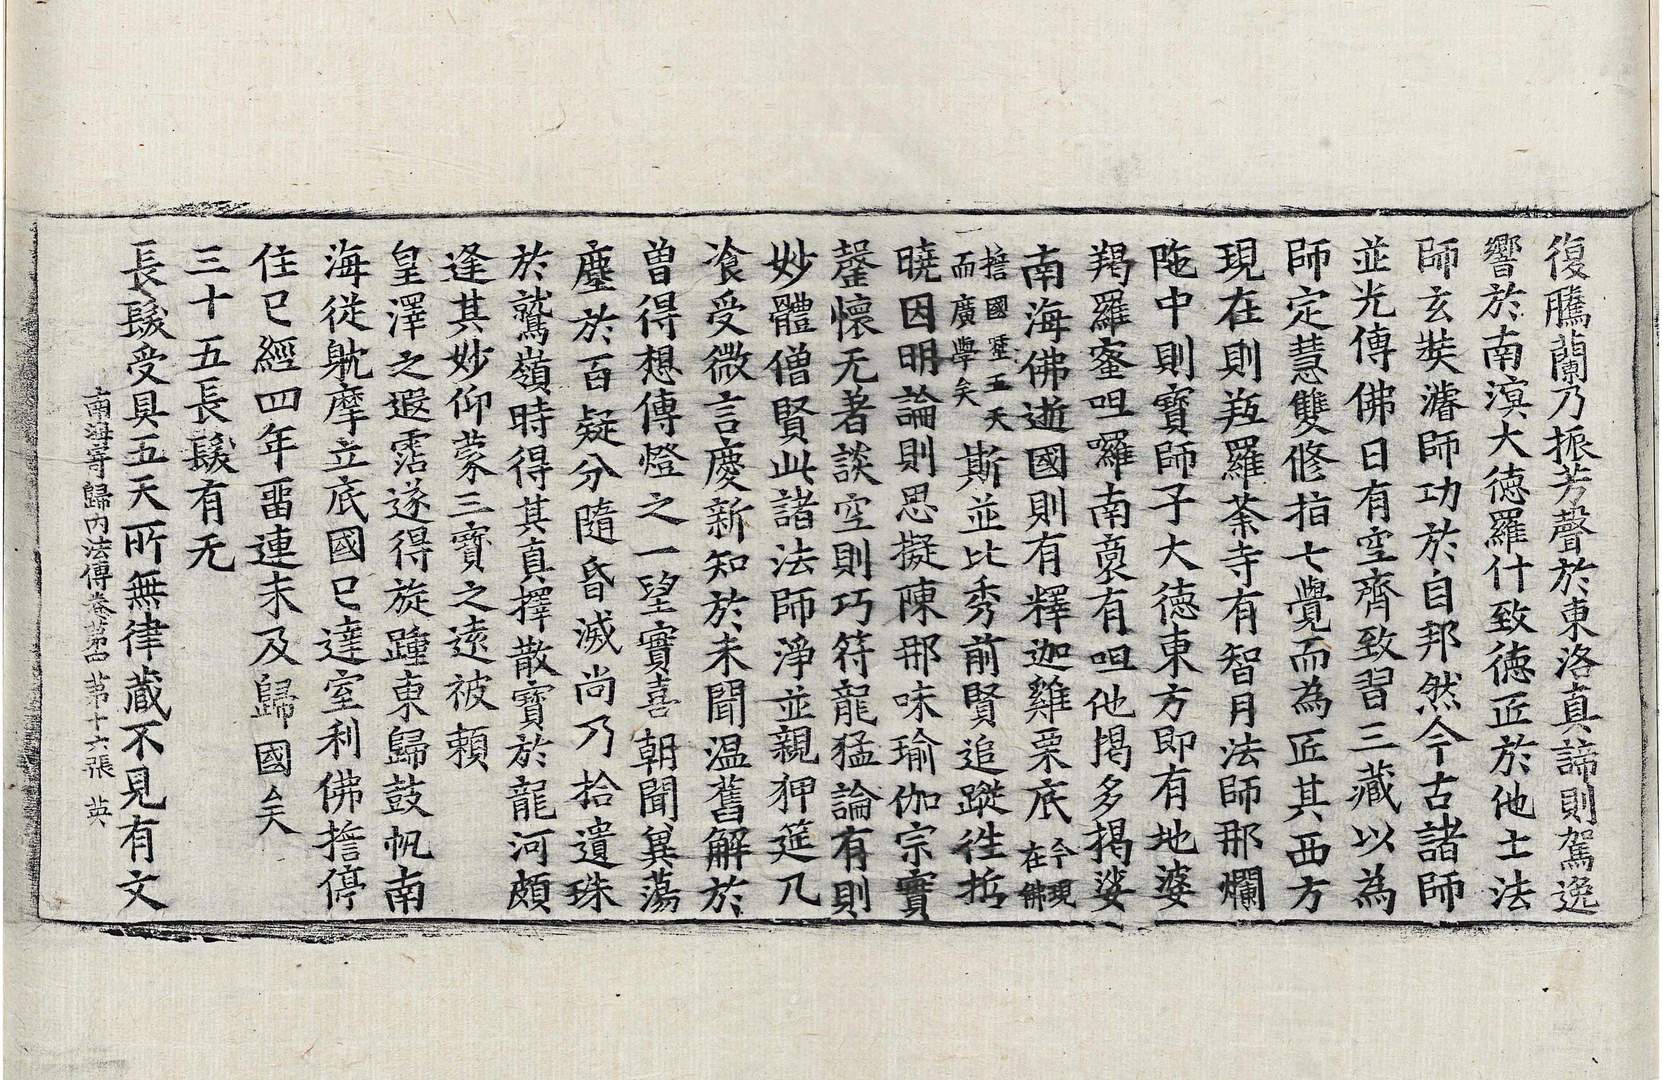 復騰蘭乃振芳聲於東洛真諦則駕逸
響於南溟大德羅什致德匠於他土法
師玄奘濬師功於自邦然今古諸師
並光傳佛日有空齊致習三藏以為
師定慧雙修指七覺而為匠其西方
現在則羝羅荼寺有智月法師那爛
陁中則寶師子大德東方即有地婆
羯羅蜜呾囉南裔有呾他揭多揭娑
南海佛逝國則有釋迦雞栗底今現在佛
擔國歷五天而廣學矣斯並比秀前賢追蹤往哲
曉因明論則思擬陳那味瑜伽宗實
罄懷无著談空則巧符龍猛論有則
妙體僧賢此諸法師淨並親狎筵几
飡受微言慶新知於未聞温舊解於
曾得想傳燈之一望實喜朝聞冀蕩
塵於百疑分隨昏滅尚乃拾遺珠
於鷲嶺時得其真擇散寶於龍河頗
逢其妙仰蒙三寶之遠被賴
皇澤之遐霑遂得旋踵東歸鼓帆南
海從躭摩立底國已達室利佛擔停
住已經四年畱連未及歸國矣
三十五長髮有无
長髮受具五天所無律藏不見有文
南海寄歸內法傳卷第四 第十六張 英